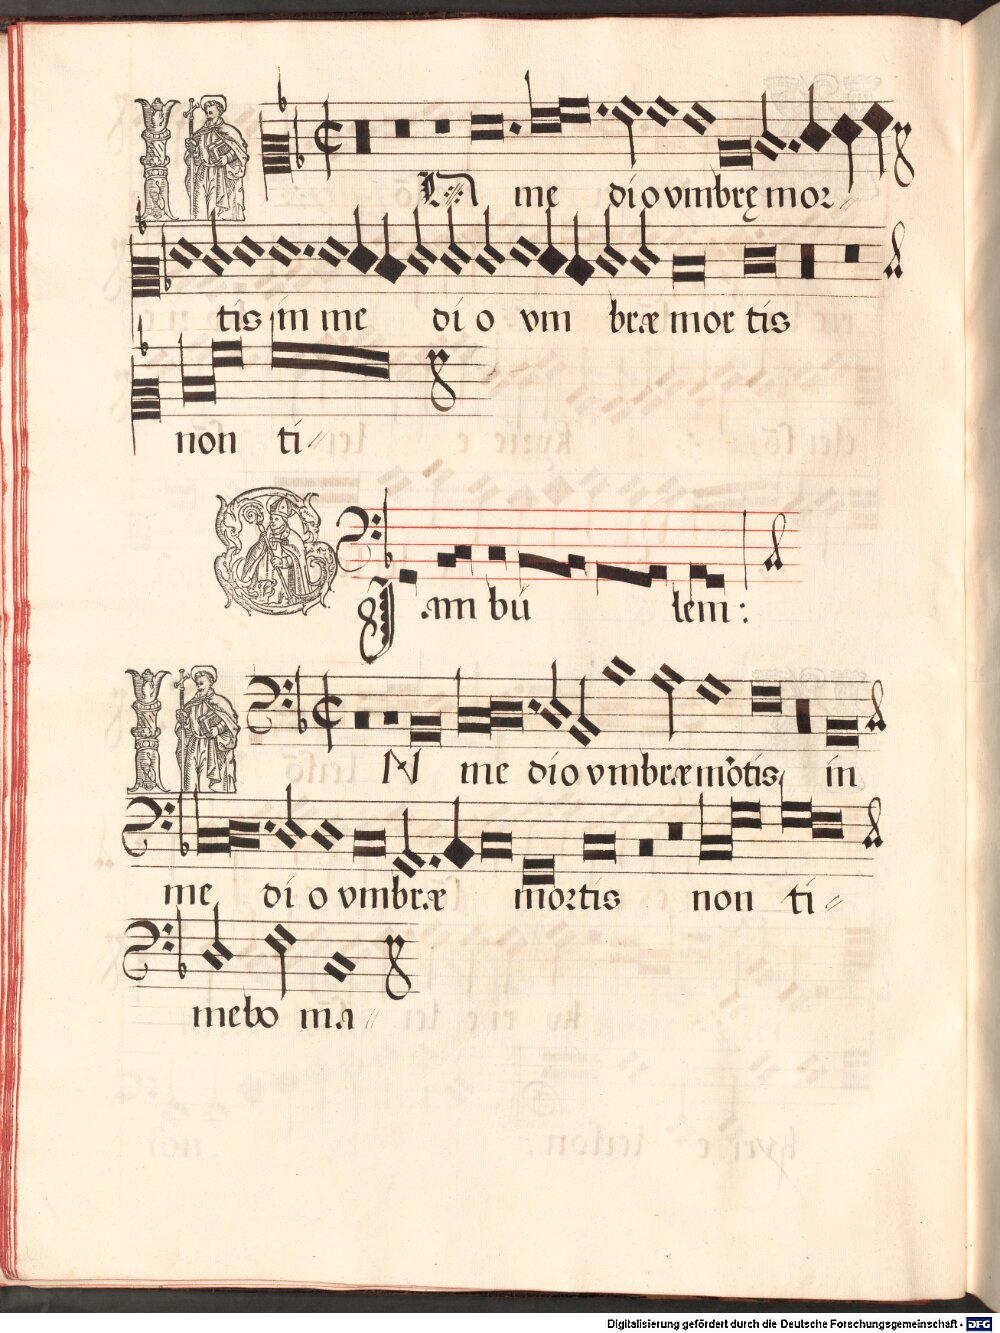 IN me dio vmbrę mor
tis in me di o vm bræ mor tis
non ti
Jam bu lem:
IN me dio vmbræ mõtis in
me di o vmbræ mortis non ti
mebo ma
Digitalisierung gefördert durch die Deutsche Forschungsgemeinschaft - DFG